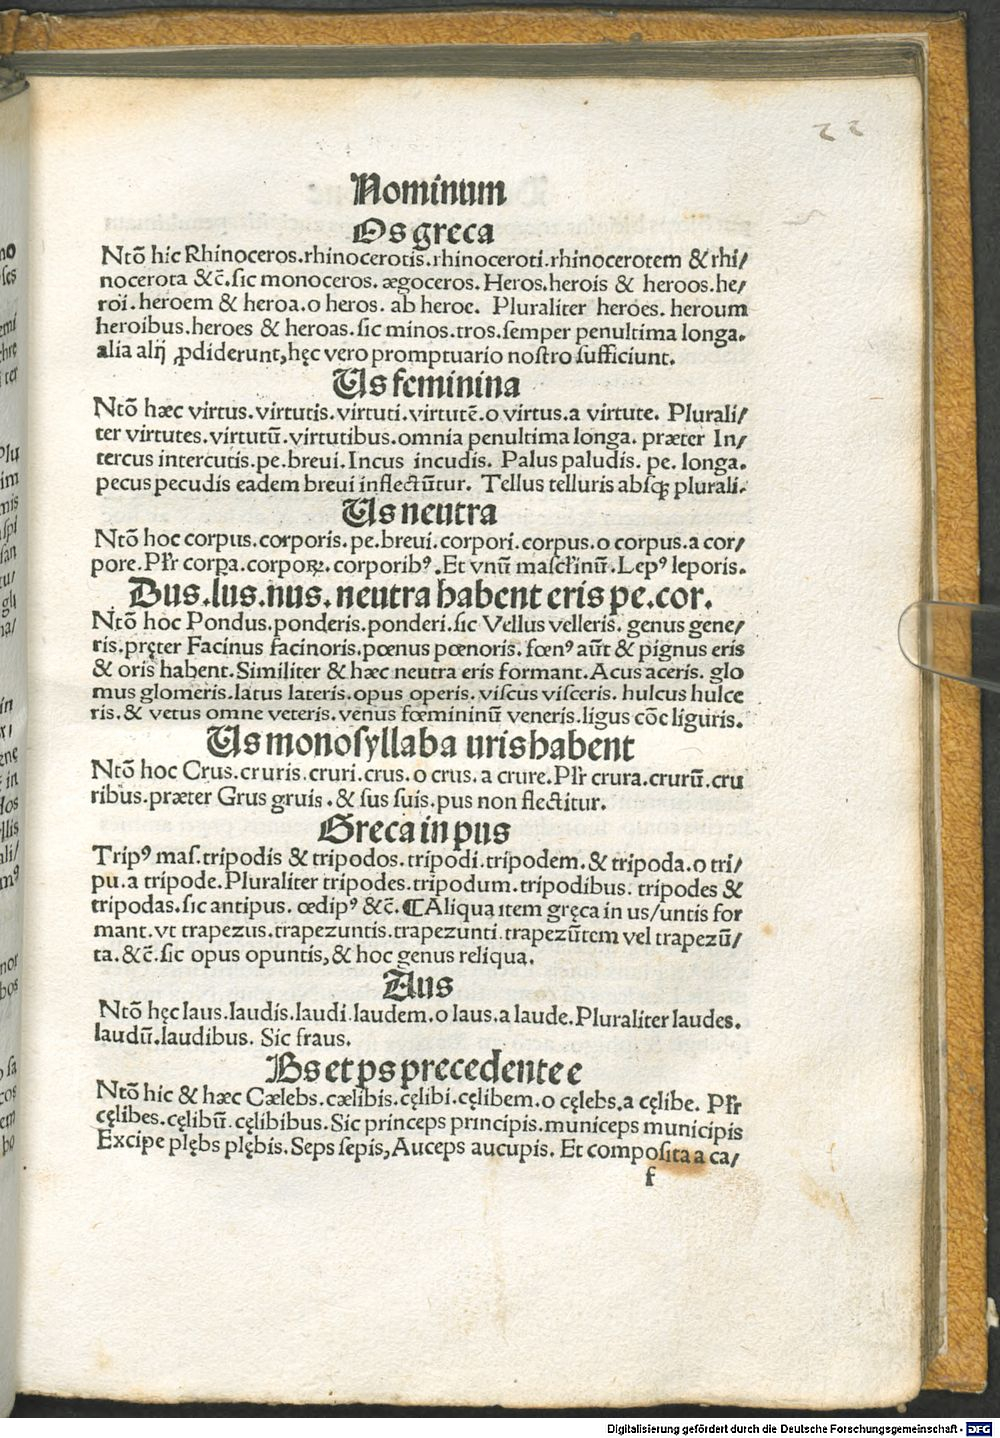 22
Nominum
Os greca
Ntō hic Rhinoceros.rhinocerotis.rhinoceroti.rhinocerotem & rhi/
nocerota &c̄.sic monoceros. ægoceros. Heros.herois & heroos.he/
roi.heroem & heroa.o heros. ab heroe. Pluraliter heroes. heroum
heroibus.heroes & heroas.sic minos.tros.semper penultima longa.
alia alij ꝓdiderunt,hęc vero promptuario nostro sufficiunt.
Us feminina
Ntō hæc virtus.virtutis.virtuti.virtutē.o virtus.a virtute. Plurali/
ter virtutes.virtutū.virtutibus.omnia penultima longa. præter In/
tercus intercutis.pe.breui.Incus incudis. Palus paludis. pe. longa.
pecus pecudis eadem breui inflectūtur. Tellus telluris absqꝫ plurali.
Us neutra
Ntō hoc corpus.corporis.pe.breui.corpori.corpus.o corpus.a cor/
pore.Pl̄r corpa.corpoꝝ.corporibꝰ.Et vnū masc̄linū.Lepꝰ leporis.
Dus.lus.nus.neutra habent eris pe.cor.
Ntō hoc Pondus.ponderis.ponderi.sic Vellus velleris. genus gene/
ris.pręter Facinus facinoris.pœnus pœnoris. fœnꝰ aūt & pignus eris
& oris habent.Similiter & hæc neutra eris formant.Acus aceris. glo
mus glomeris.latus lateris.opus operis.viscus visceris. hulcus hulce
ris.& vetus omne veteris.venus fœmininū veneris.ligus cōe liguris.
Us monosyllaba uris habent
Ntō hoc Crus.cruris.cruri.crus.o crus.a crure.Pl̄r crura.crurū.cru
ribus.præter Grus gruis.& sus suis.pus non flectitur.
Greca in pus
Tripꝰ mas.tripodis & tripodos.tripodi.tripodem.& tripoda.o tri/
pu.a tripode.Pluraliter tripodes.tripodum.tripodibus. tripodes &
tripodas.sic antipus. œdipꝰ &c̄.¶Aliqua item gręca in us/untis for
mant.vt trapezus.trapezuntis.trapezunti.trapezūtem vel trapezū/
ta.&c̄.sic opus opuntis,& hoc genus reliqua.
Aus
Ntō hęc laus.laudis.laudi.laudem.o laus.a laude.Pluraliter laudes.
laudū.laudibus. Sic fraus.
Bs et ps precedente e
Ntō hic & hæc Cælebs.cælibis.cęlibi.cęlibem.o cęlebs.a cęlibe. Pl̄r
cęlibes.cęlibū.cęlibibus.Sic princeps principis.municeps municipis
Excipe plębs plębis.Seps sepis,Auceps aucupis. Et composita a ca/
f
Digitalisierung gefördert durch die Deutsche Forschungsgemeinschaft - DFG